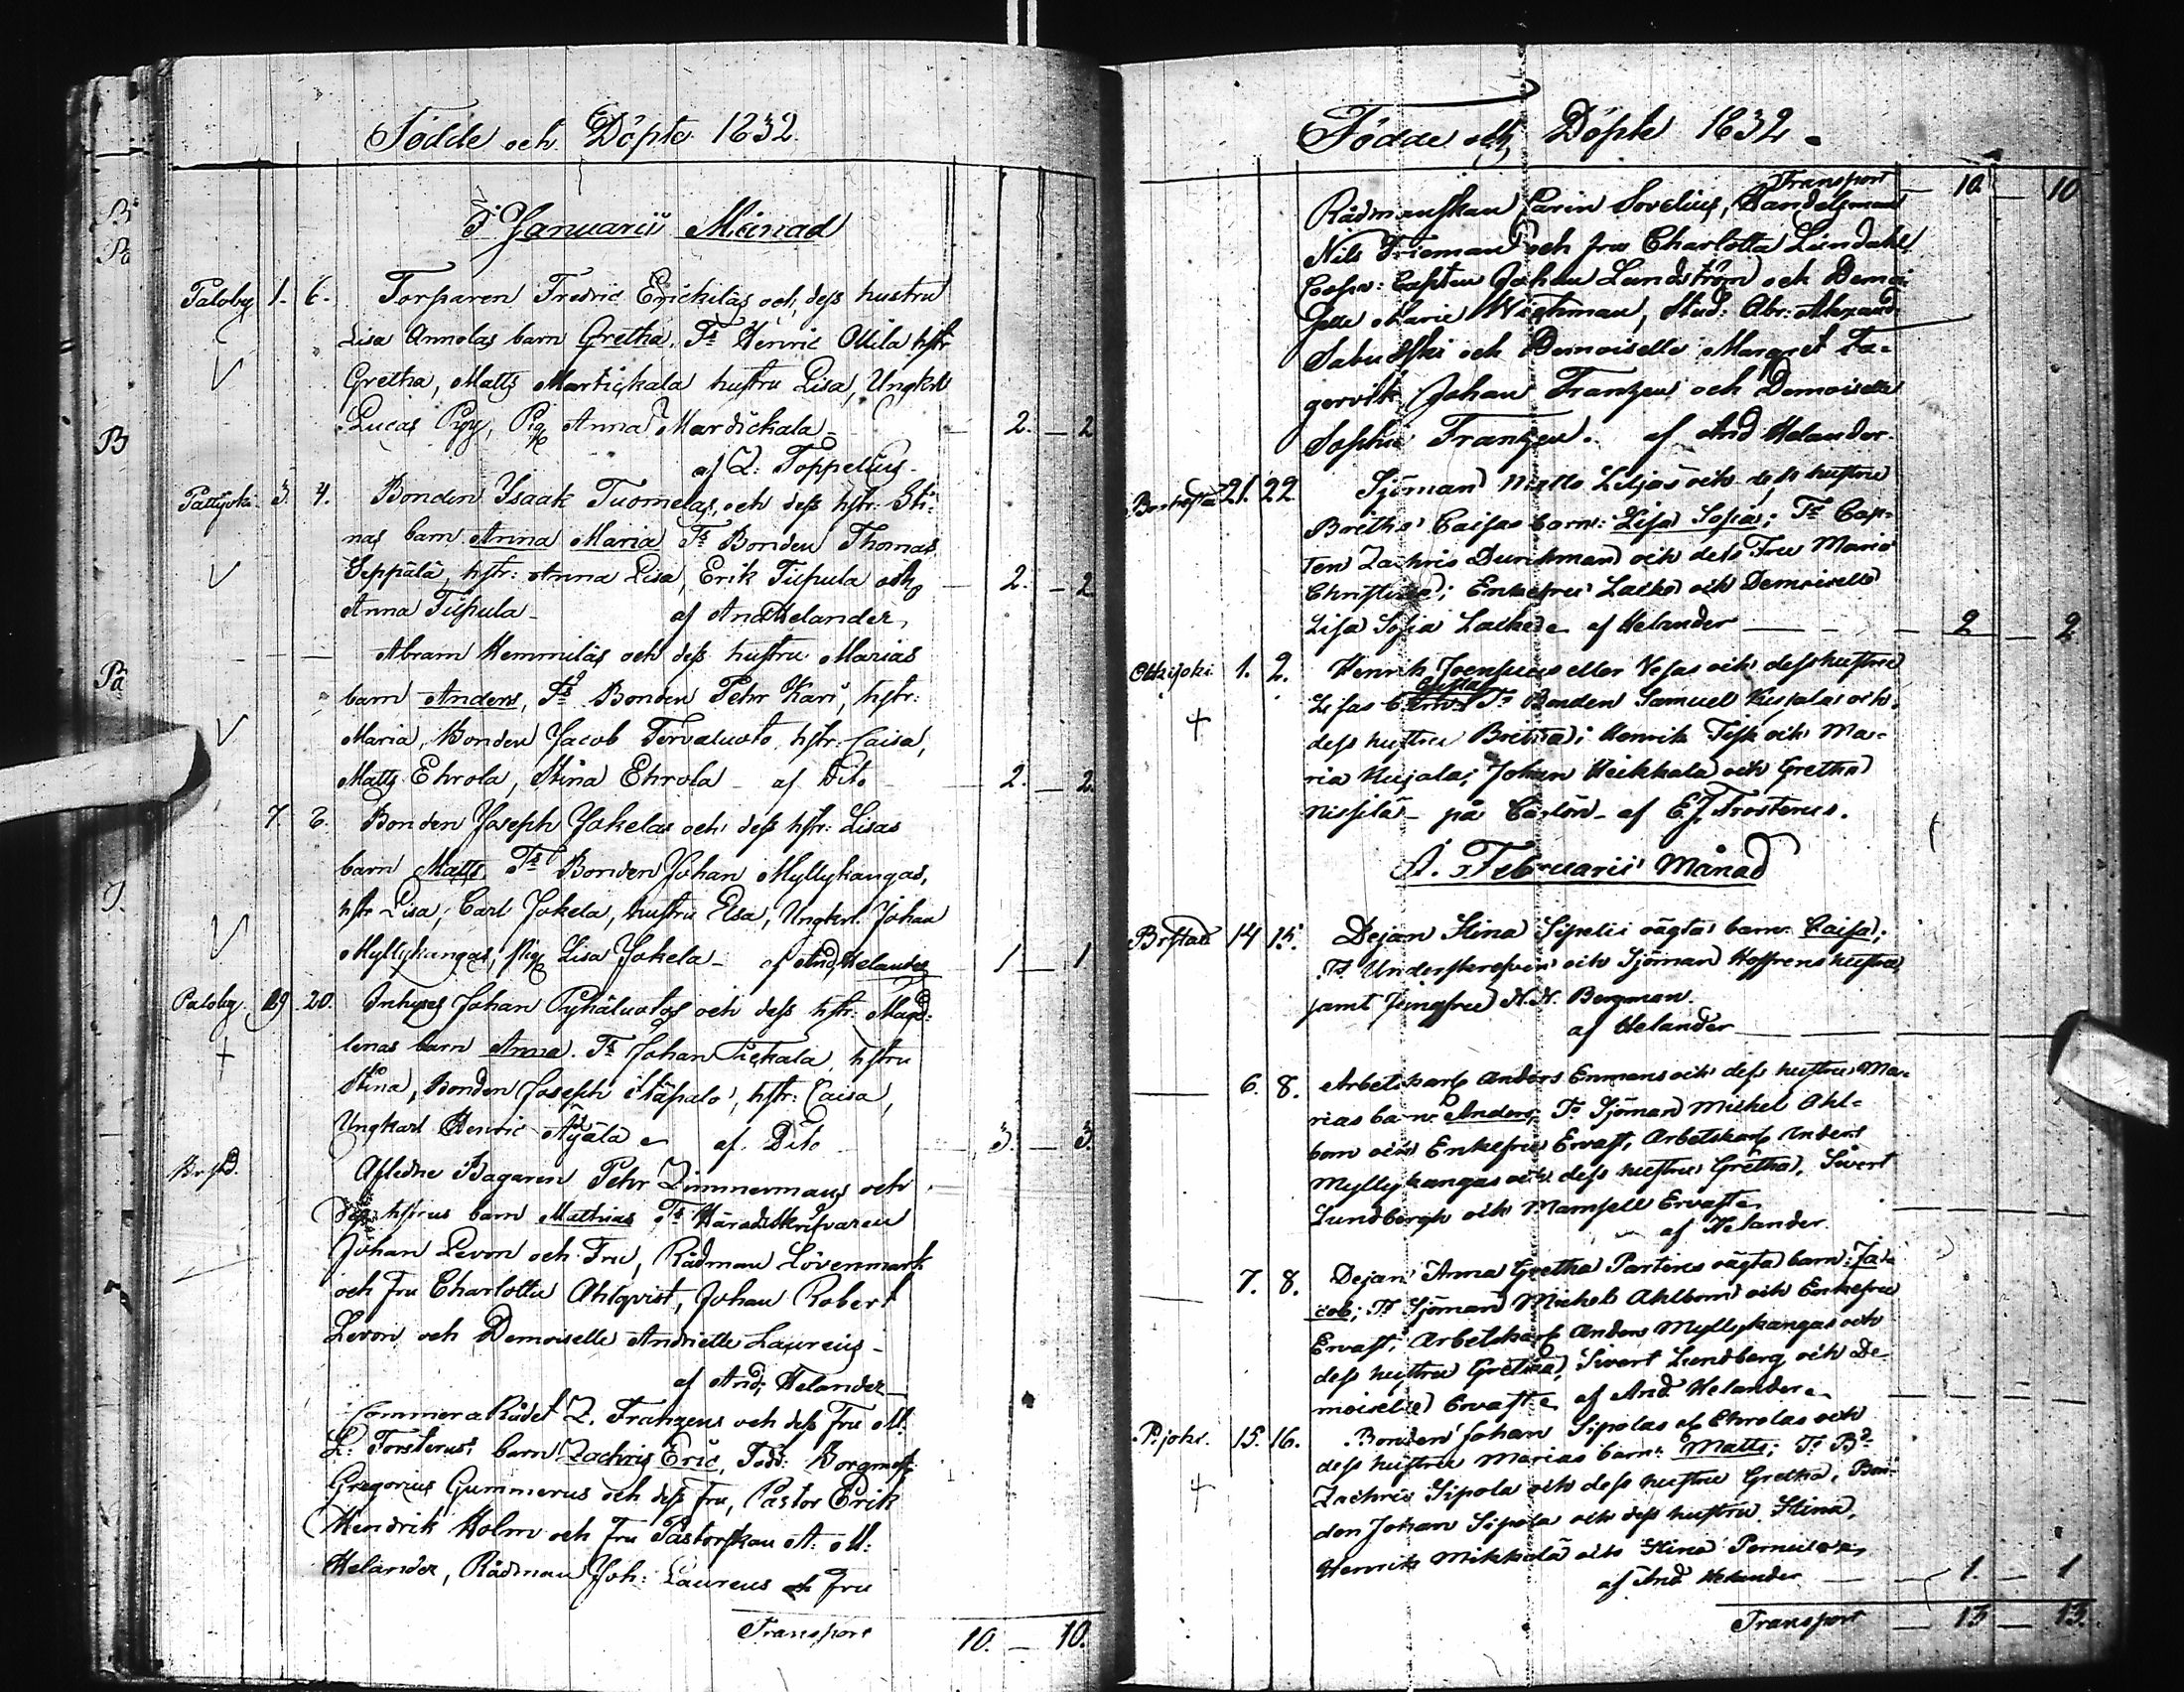 Födde och Döpte 1832.
I Januarii Månad
Paloby 1. 6. Torparen Fredric Erickiläs och dess hustru
Lisa Annolas barn Gretha. Ts Henric Ollila hstr
Gretha, Matts Martickala hustru Lisa, Ungkarl
Lucas Pyy, Pig. Anna Mardickala - 2. - 2
af Z: Toppelius.
Pattijocki 3. 4. Bonden Isaak Tuomelas, och dess hstr: Sti-
nas barn Anna Maria Ts Bonden Thomas
Seppälä, hstr: Anna Lisa, Erik Tiipula och - 2. - 2.
Anna Tiipula - af And Helander,
Abram Hemmiläs och dess hustru Marias
barn Anders, Ts Bonden Pehr Kari, hstr:
Maria, Bonden Jacob Tervaluoto, hstr: Caisa,
Matts Ehrola, Stina Ehrola - af Dito 2. - 2.
7. 8. Bonden Joseph Jokelas och dess hstr: Lisas
barn Matts Ts Bonden Johan Myllykangas,
hstr Lisa; Carl Jokela, hustru Elsa, Ungkrl. Johan
Myllykangas, pig. Lisa Jokela - af And. Helander 1 - 1
Paloby 19 20. Inhyses Johan Pyhäluotos och dess hstr: Magd-
lenas barn Anna. Ts Johan Pickala, hstru
Stina, Bonden Joseph Ståhpalo, hstr: Caisa,
Ungkarl Henric Äijälä - af Dito - 3. - 3.
Br. std. Afledne Bagaren Pehr Zimmermans och
dess hstrus barn Mathias Ts Häradsskrifvaren
Johan Levon och Fru, Rådman Lövenmark
och Fru Charlotta Ahlqvist, Johan Robert
Levon och Demoiselle Andriette Laureus -
af And. Helander -
Commerce Rådet Z. Franzens och dess Fru M:
L: Forsterus' barn Zachris Eric, Fadd: Borgmest.
Gregorius Gummerus och dess Fru, Pastor Erik
Hendrik Holm och Fru Pastorskan A: M:
Helander, Rådman Joh: Laureus och Fru
Transport 10. - 10.
Födde och Döpte 1832.
Transport 10 10
Rådmanskan Carin Sovelius, Handelsman
Nils Frieman och fru Charlotta Lundahl,
Coopv: Capten Johan Lundström och Demoi-
selle Maria Wichman, Stud: Abr: Alexand.
och Demoiselle Margret Fa-
gervik Johan Franzen och Demoiselle
Sophie Franzen. af And Helander.
21. 22. Sjöman Matts Liljas och dess hustru
Britha Caisas barn: Lisa Sofia; Ts Cap-
ten Zachris Durchman och dess Fru Maria
Christina; Enkefru Lacke och Demoiselle
Lisa Sofia Lacke - af Helander - 2 - 2
Olkijoki 1. 2. Henrik Joensuus eller Vesas och dess hustru
Lisas barn: Ts Bonden Samuel Kuskala och
dess hustru Britta; Henrik Fisk och Ma-
ria Kujala; Johan Heikkala och Gretha
Nissilä - på Carlön - af E.J. Frosterus.
I. Februarii Månad
Br stad 14 15. Dejan Stina Sipelii oägta barn: Caisa;
Ts Underskrefven och Sjöman Hoffrens hustru,
samt Jungfru N.N. Bergman.
af Helander
6. 8. Arbetskarl Anders Enmans och dess hustru Ma-
rias barn Anders, Ts Sjöman Michel Ahl-
bom och Enkefru Ervast, Arbetskarl Anders
Myllykangas och dess hustru Gretha, Sivert
Lundbergh och Mamsell Ervast -
af Helander.
7. 8. Dejan Anna Gretha Partinens oägta barn: Ja-
cob; Ts Sjöman Michels Ahlbom och Enkefru
Ervast; Arbetskarl Anders Myllykangas och
dess hustru Gretha, Sivert Lundberg och De-
moiselle Ervast - af And Helander -
P. joki. 15. 16. Bonden Johan Sipolas af Ehrolas och
dess hustru Marias barn: Matts; Ts Bd
Zachris Sipola och dess hustru Gretha, Bon-
den Johan Sipola och dess hustru Stina,
Henrik Mikkola och Stina
af And Helander 1. - 1
Transport - 13 - 13.